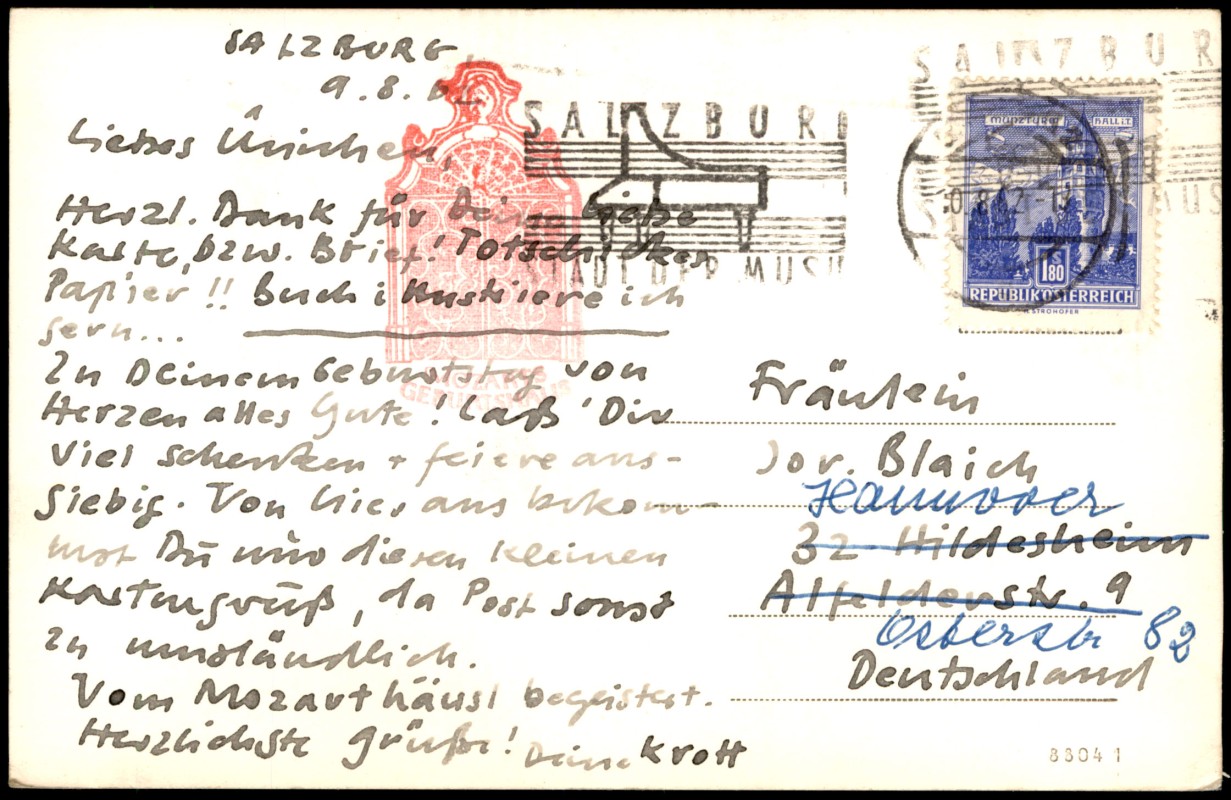 SALZBURG
9.8.62
Liebes Ürmchen,
Herzl. Dank für Deine liebe
Karte, bzw. Brief! Totschickes
Papier!! Buch i
ich
gern...
Zu Deinem Geburtstag von
Herzen alles Gute! Laß' Dir
viel schenken + feiere aus-
giebig. Von hier aus bekom-
mst Du nur diesen kleinen
Kartengruß, da Post sonst
zu umständlich.
Vom Mozarthäusl begeistert.
Herzlichste Grüße! Deine Krott
MOZARTS
GEBURTSHAUS
SALZBURG
STADT DER MUSI
SALZBUR
MUS
MÜNZTURM HALL i.T.
S 1.80
REPUBLIK ÖSTERREICH
Fräulein
Dor. Blaich
Hannover
32 Hildesheim
Alfelderstr. 9
Osterstr 82
Deutschland
83041